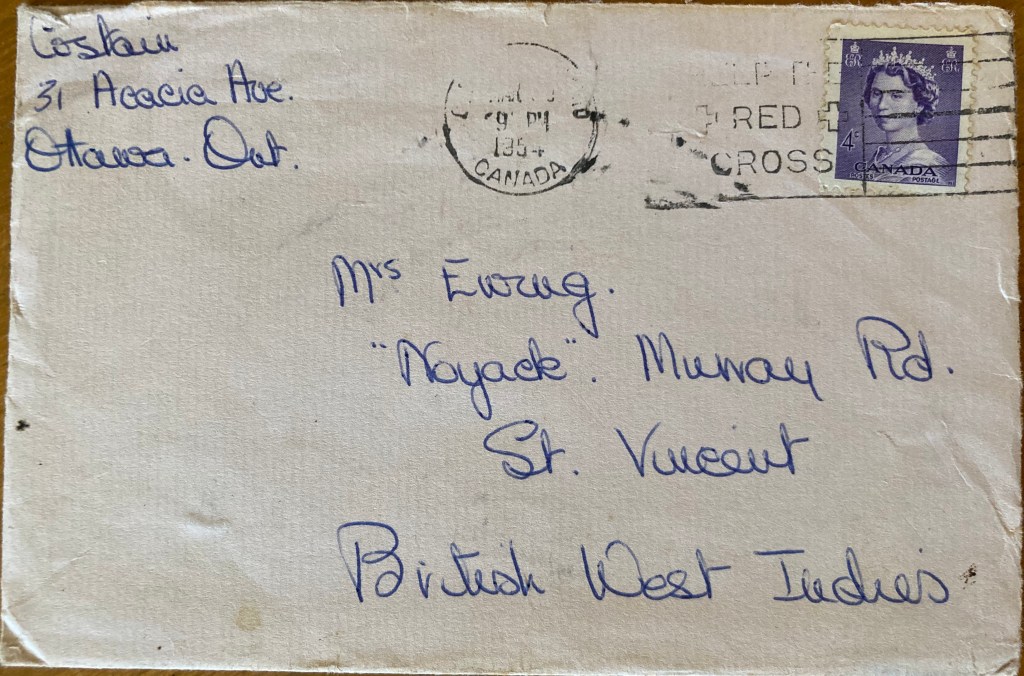 Costain
31 Acacia Ave.
Ottawa. Ont.
9 PM
1954
CANADA
RED
CROSS
4c
CANADA
POSTES POSTAGE
Mrs Ewing.
"Noyack". Murray Rd.
St. Vincent
British West Indies